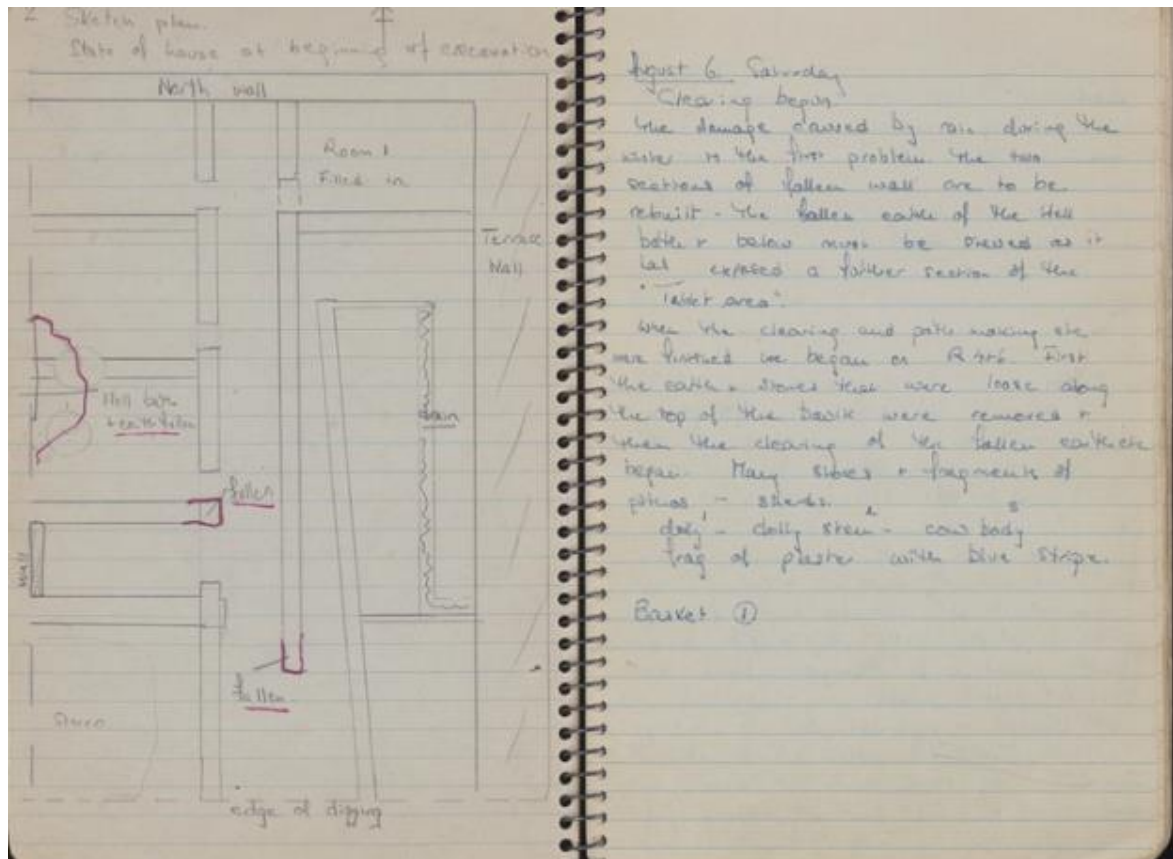 2 Sketch plan.
State of house at beginning of excavation
North wall
Room 1
Filled in
Terrace
Wall
drain
+ earth fallen
fallen
Wall
fallen
edge of digging
August 6 Saturday
Clearing begun
The damage caused by rain during the
winter is the first problem. The two
sections of fallen wall are to be
rebuilt - the fallen earth of the
below must be as it
has exposed a further section of the
area".
When the clearing and path making etc
were finished we began on First
the earth + stones that were loose along
the top of the baulk were removed +
then the clearing of the fallen earth etc
began. Many stones + fragments of
pithos - sherds.
dolly - dolly stem - cow body
frag of plaster with blue stripe.
Basket 1